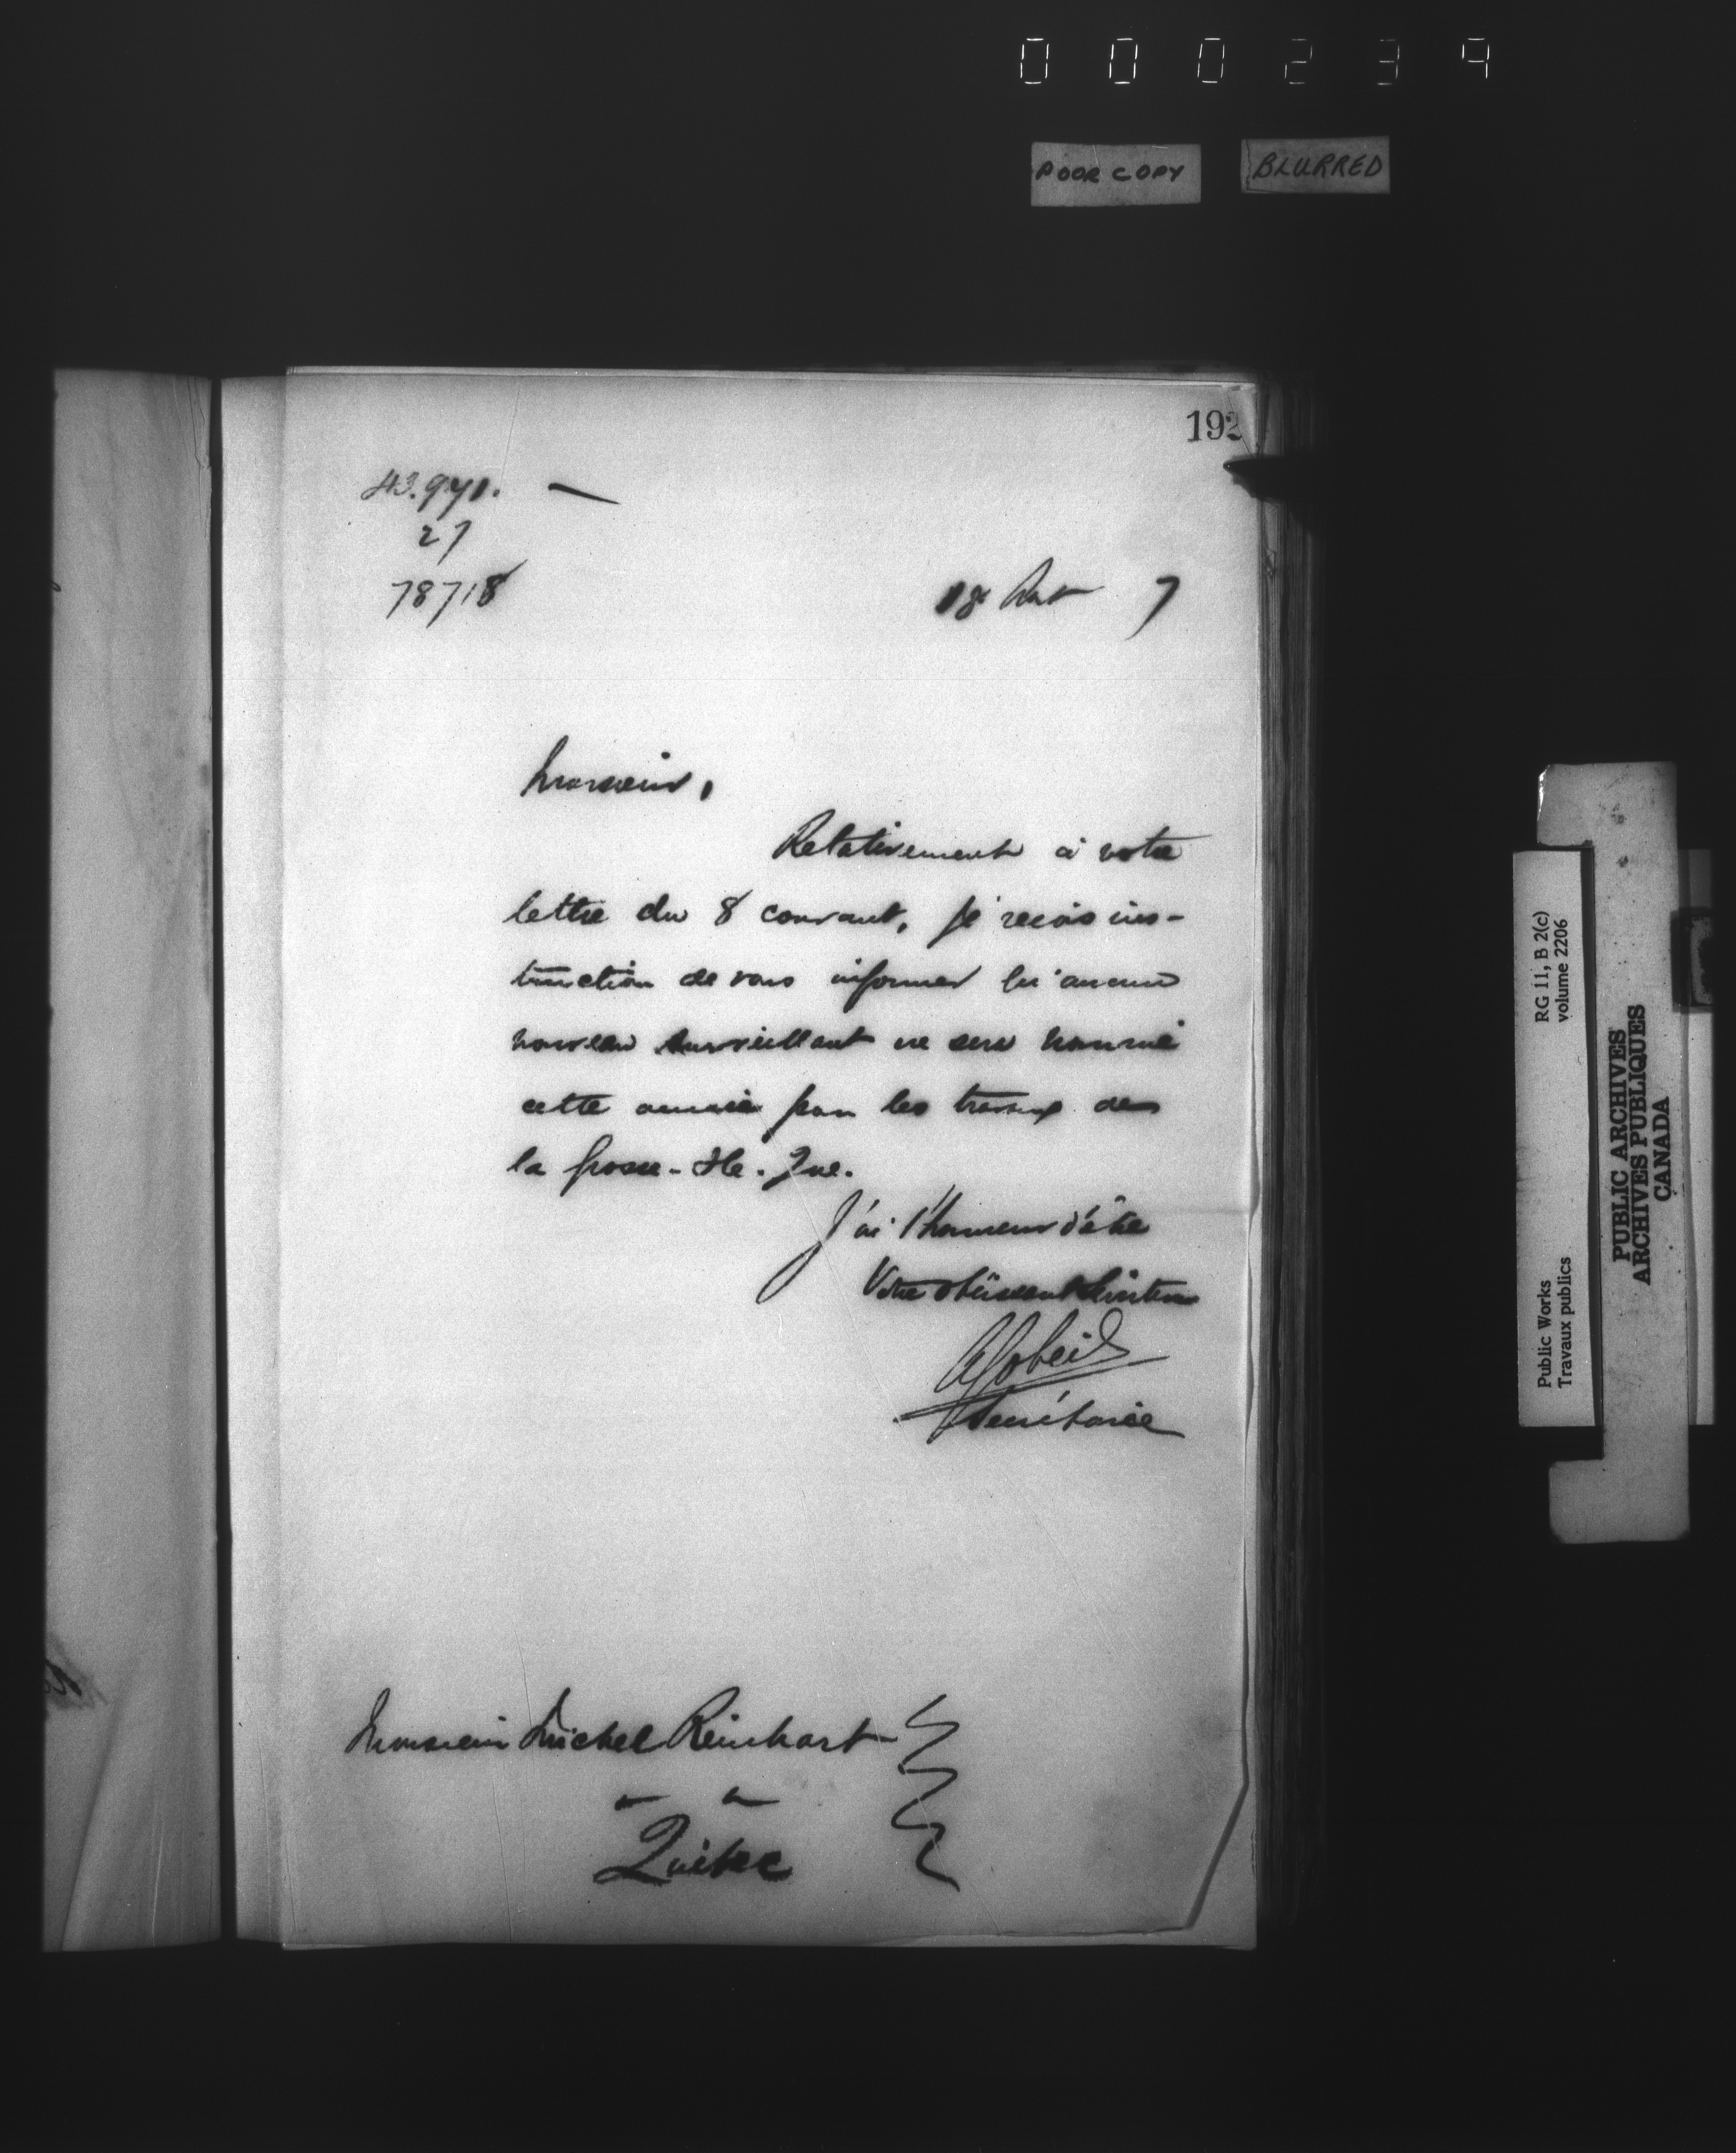 000239
POOR COPY BLURRED
192
43.971.
27
78718
18 7
Monsieur,
Relativement à votre
lettre du 8 courant, je reçois ins-
truction de vous informer qu'aucun
nouveau surveillant ne sera nommé
cette année pour les travaux de
la Grosse-Ile. Que.
J'ai l'honneur d'être
Votre obéissant Serviteur
AGobeil
Secrétaire
Monsieur Michel Reinhart
Québec
RG 11, B 2(c)
volume 2206
Public Works
Travaux publics
PUBLIC ARCHIVES
ARCHIVES PUBLIQUES
CANADA